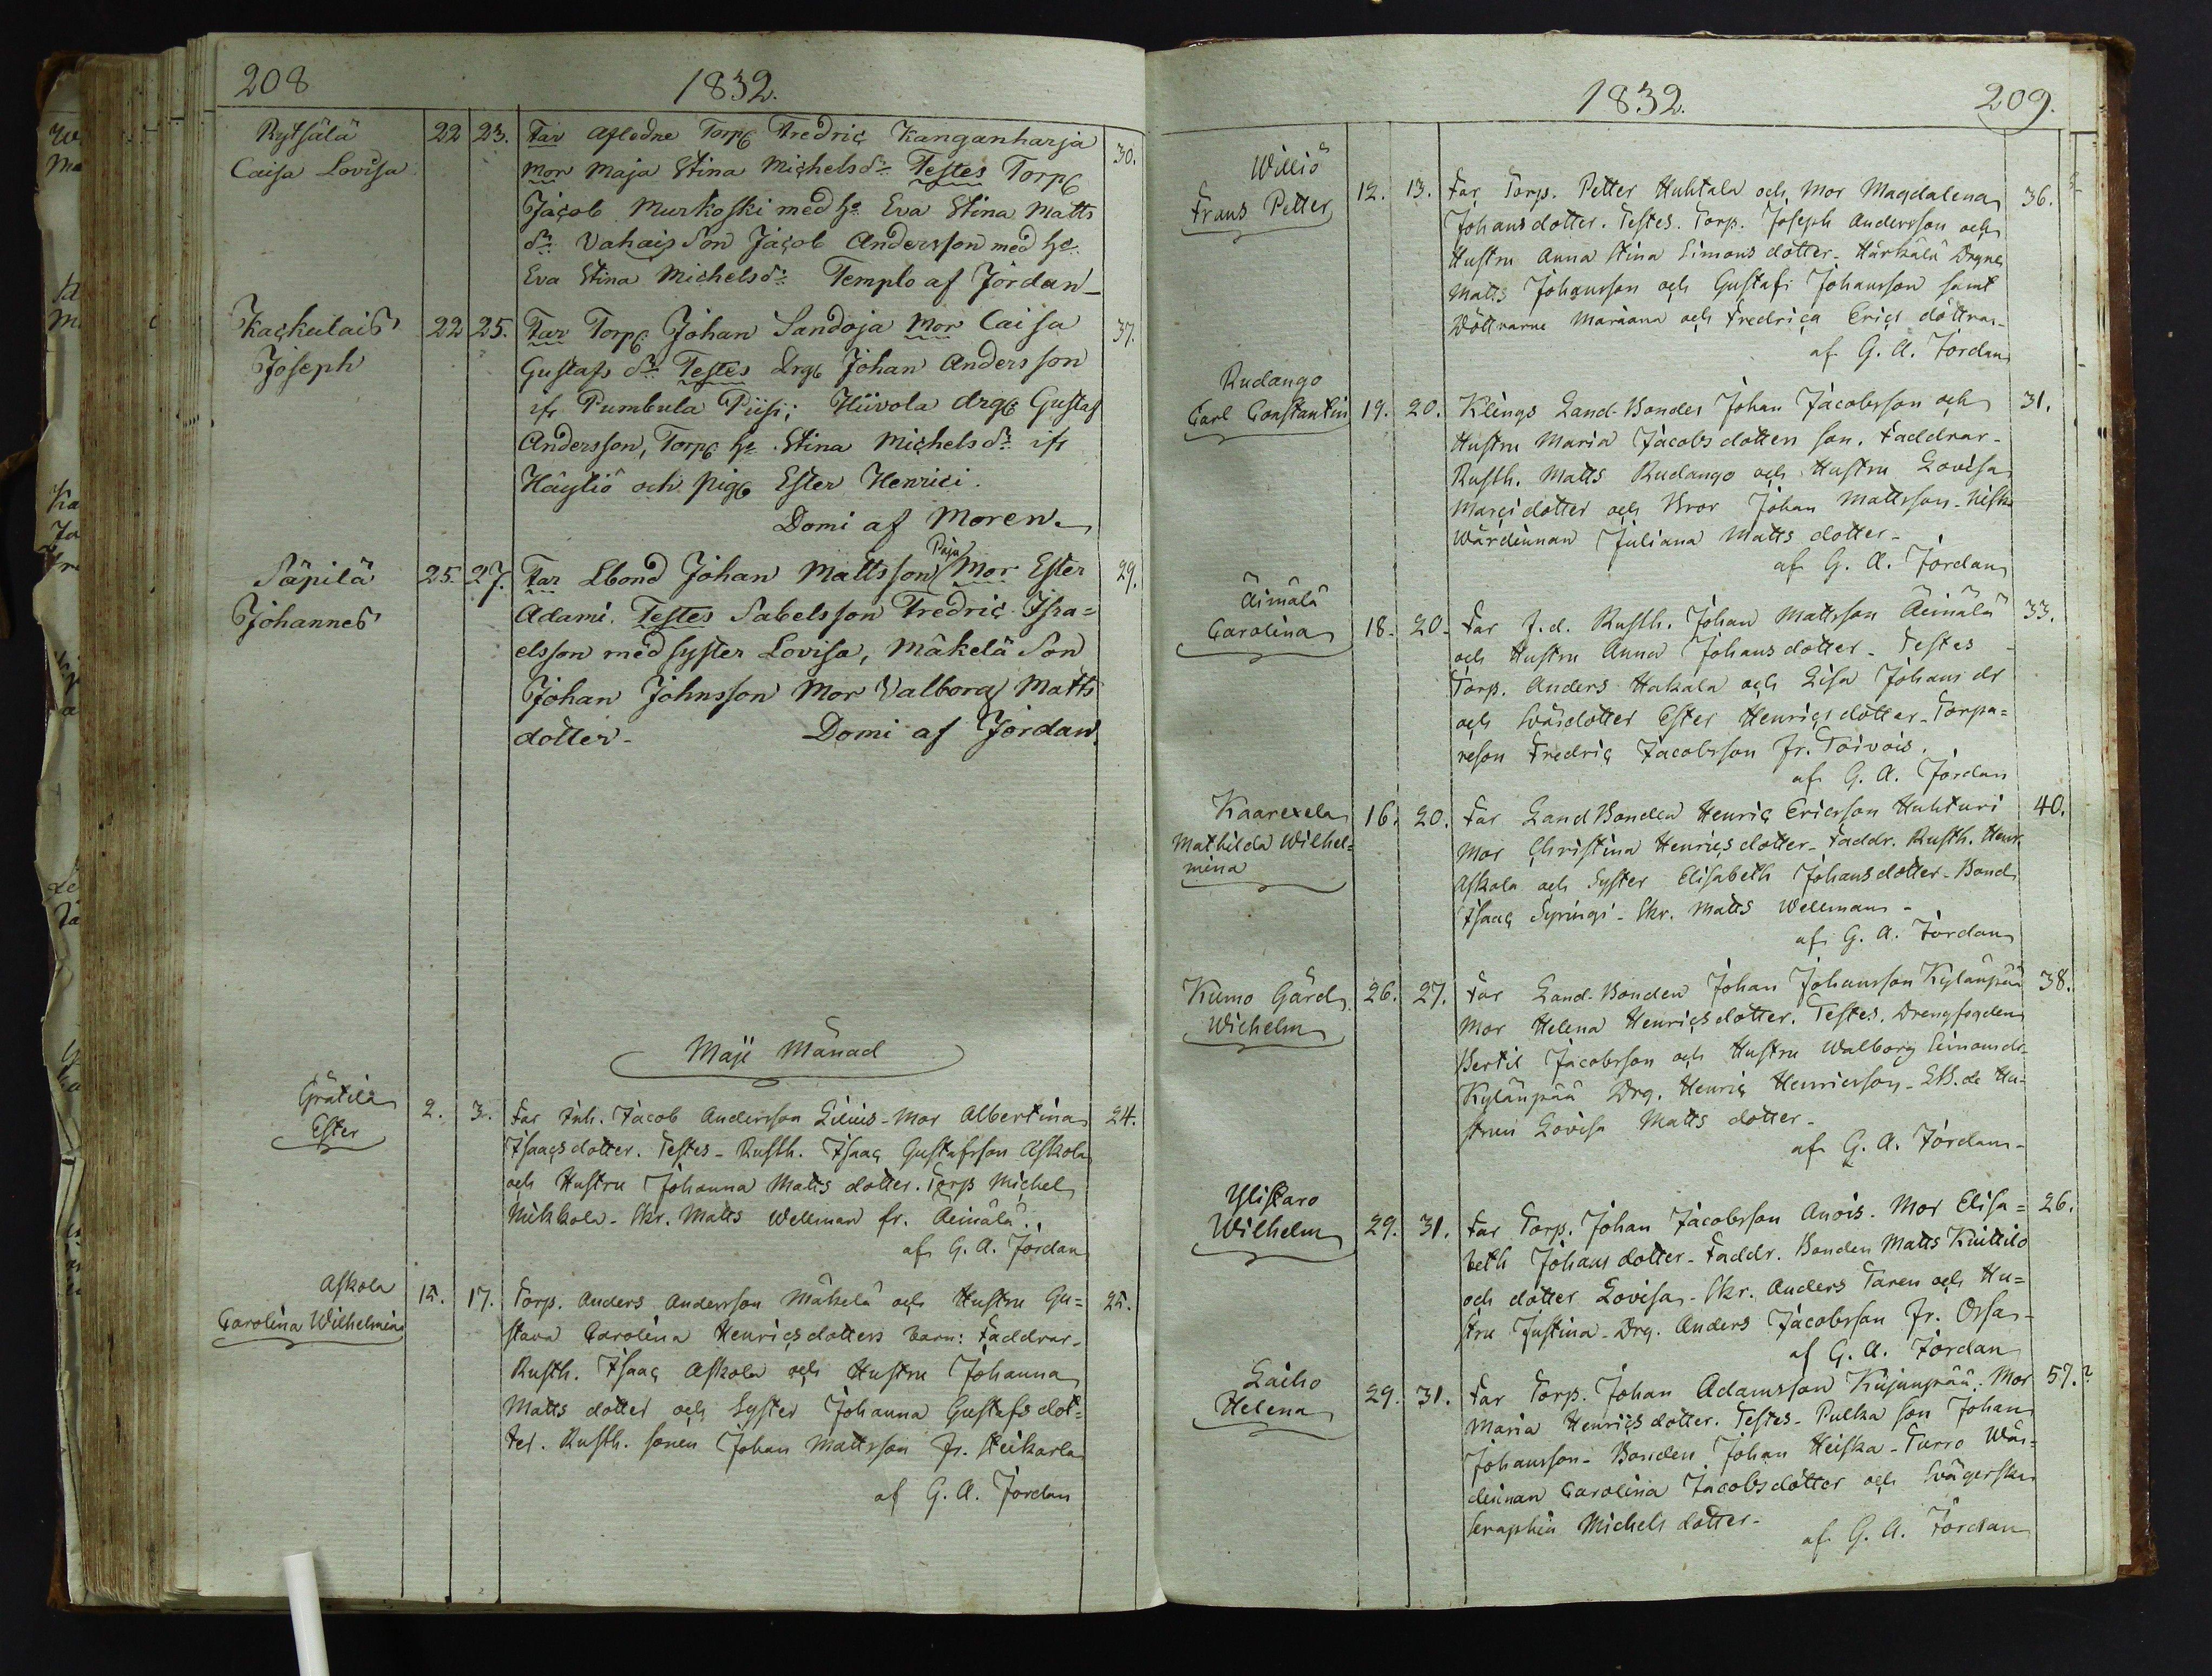 208
1832.
Rytsälä
Caisa Lovisa
22 23.
Far Afledne Torp Fredric Kanganharja
Mor Maja Stina Michelsdr Testes Torp
30.
Jacob Murkoski med h. Eva Stina Matts
dr Vahais Son Jacob Andersson med h.
Eva Stina Michelsdr Templo af Jordan
Kackulais
Joseph
22 25.
Far Torp Johan Sandoja Mor Caisa
37.
Gustafs dr Testes drg Johan Andersson
ifr Pumbula Piisi; Hiivola drg Gustaf
Andersson, Torp h. Stina Michelsdr ifr
Häyliö och pig Ester Henrici.
Domi af Moren
Säpilä
Johannes
25. 27.
Far Lbond Johan Mattsson Paja Mor Ester
29.
Adami. Testes Sabelsson Fredric Isra=
elsson med syster Lovisa, Mäkelä Son
Johan Johnsson Mor Valborg Matts
dotter. Domi af Jordan.
Maji Månad
Grätilä
Ester
2. 3.
Far Inh. Jacob Andersson Lilius - Mor Albertina
24.
Isaacsdotter. Testes - Rusth. Isaac Gustafsson Askola
och Hustru Johanna Matts dotter. Torp Michel
Mikkola - Skr. Matts Wellman fr. Äimälä.
af G. A. Jordan
Askola
Carolina Wilhelmina
15. 17.
Torp. Anders Andersson Mäkelä och Hustru Gu=
25.
stava Carolina Henricsdotters barn: Faddrar -
Rusth. Isaac Askola och Hustru Johanna
Matts dotter och Syster Johanna Gustafs dot=
ter. Rusth. sonen Johan Mattsson fr. Steikarla
af G. A. Jordan
1832.
209.
Williö
Frans Petter
12. 13.
Far Torp. Petter Huhtala och Mor Magdalena
36.
Johansdotter. Testes. Torp. Joseph Andersson och
Hustru Anna Stina Simons dotter - Härkälä
Matts Johansson och Gustaf Johansson samt
Döttrarne Mariana och Fredrica Erics döttrar -
af G. A. Jordan
Rudango
Carl Constantin
19. 20.
Klings Land-Bondes Johan Jacobsson och
31.
Hustru Maria Jacobsdotters son. Faddrar -
Rusth. Matts Rudango och Hustru Lovisa
Marcidotter och Bror Johan Mattsson -
Wärdinnan Juliana Matts dotter -
af G. A. Jordan
Äimälä
Carolina
18. 20.
Far f.d. Rusth. Johan Mattsson Äimälä
33.
och Hustru Anna Johansdotter - Testes -
Torp. Anders Hakala och Lisa Johans dr
och Ester Henricsdotter - Torpa=
reson Fredric Jacobsson fr. Toivois.
af G. A. Jordan
Kaarexela
Mathilda Wilhel=
mina
16. 20.
Far LandBonden Henric Ericsson Huhturi
40.
Mor Christina Henricsdotter - Faddr. Rusth. Henr.
Askola och Syster Elisabeth Johansdotter - Bond
Isaac Syringi - Skr. Matts Wellman -
af G. A. Jordan
Kumo Gård
Wichelm
26. 27.
Far Land-Bonden Johan Johansson Kylänpää
38.
Mor Helena Henricsdotter. Testes. Drengfogden
Bertil Jacobsson och Hustru Walborg Simonsdr
Kylänpää Drg. Henric Henricsson - LB.de Hu=
strun Lovisa Matts dotter -
af G. A. Jordan -
Ylistaro
Wilhelm
29. 31.
Far Torp. Johan Jacobsson Anois. Mor Elisa=
26.
beth Johans dotter - Faddr. Bonden Matts Knittilo
och dotter Lovisa - Skr. Anders Taren och Hu=
stru Justina - Drg. Anders Jacobsson fr. Orsa -
af G. A. Jordan
Laiho
Helena
29. 31.
Far Torp. Johan Adamsson Kujanpää. Mor
57.?
Maria Henricsdotter. Testes - Pulka son Johan
Johansson - Bonden Johan Heiska - Turro Wär=
dinnan Carolina Jacobsdotter och Svägerska
Seraphia Michels dotter -
af G. A. Jordan